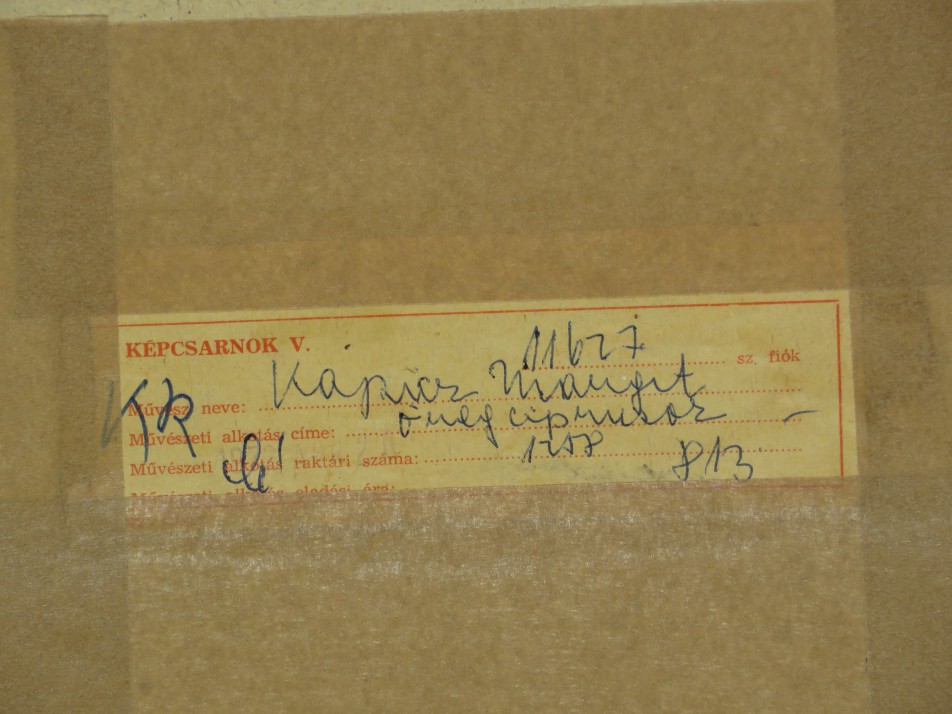 KÉPCSARNOK V.
11627 sz. fiók
Művész neve: Kapicz Margit
Művészeti alkotás címe: öreg ciprusok
Művészeti alkotás raktári száma: 813
Művészeti alkotás eladási ára: